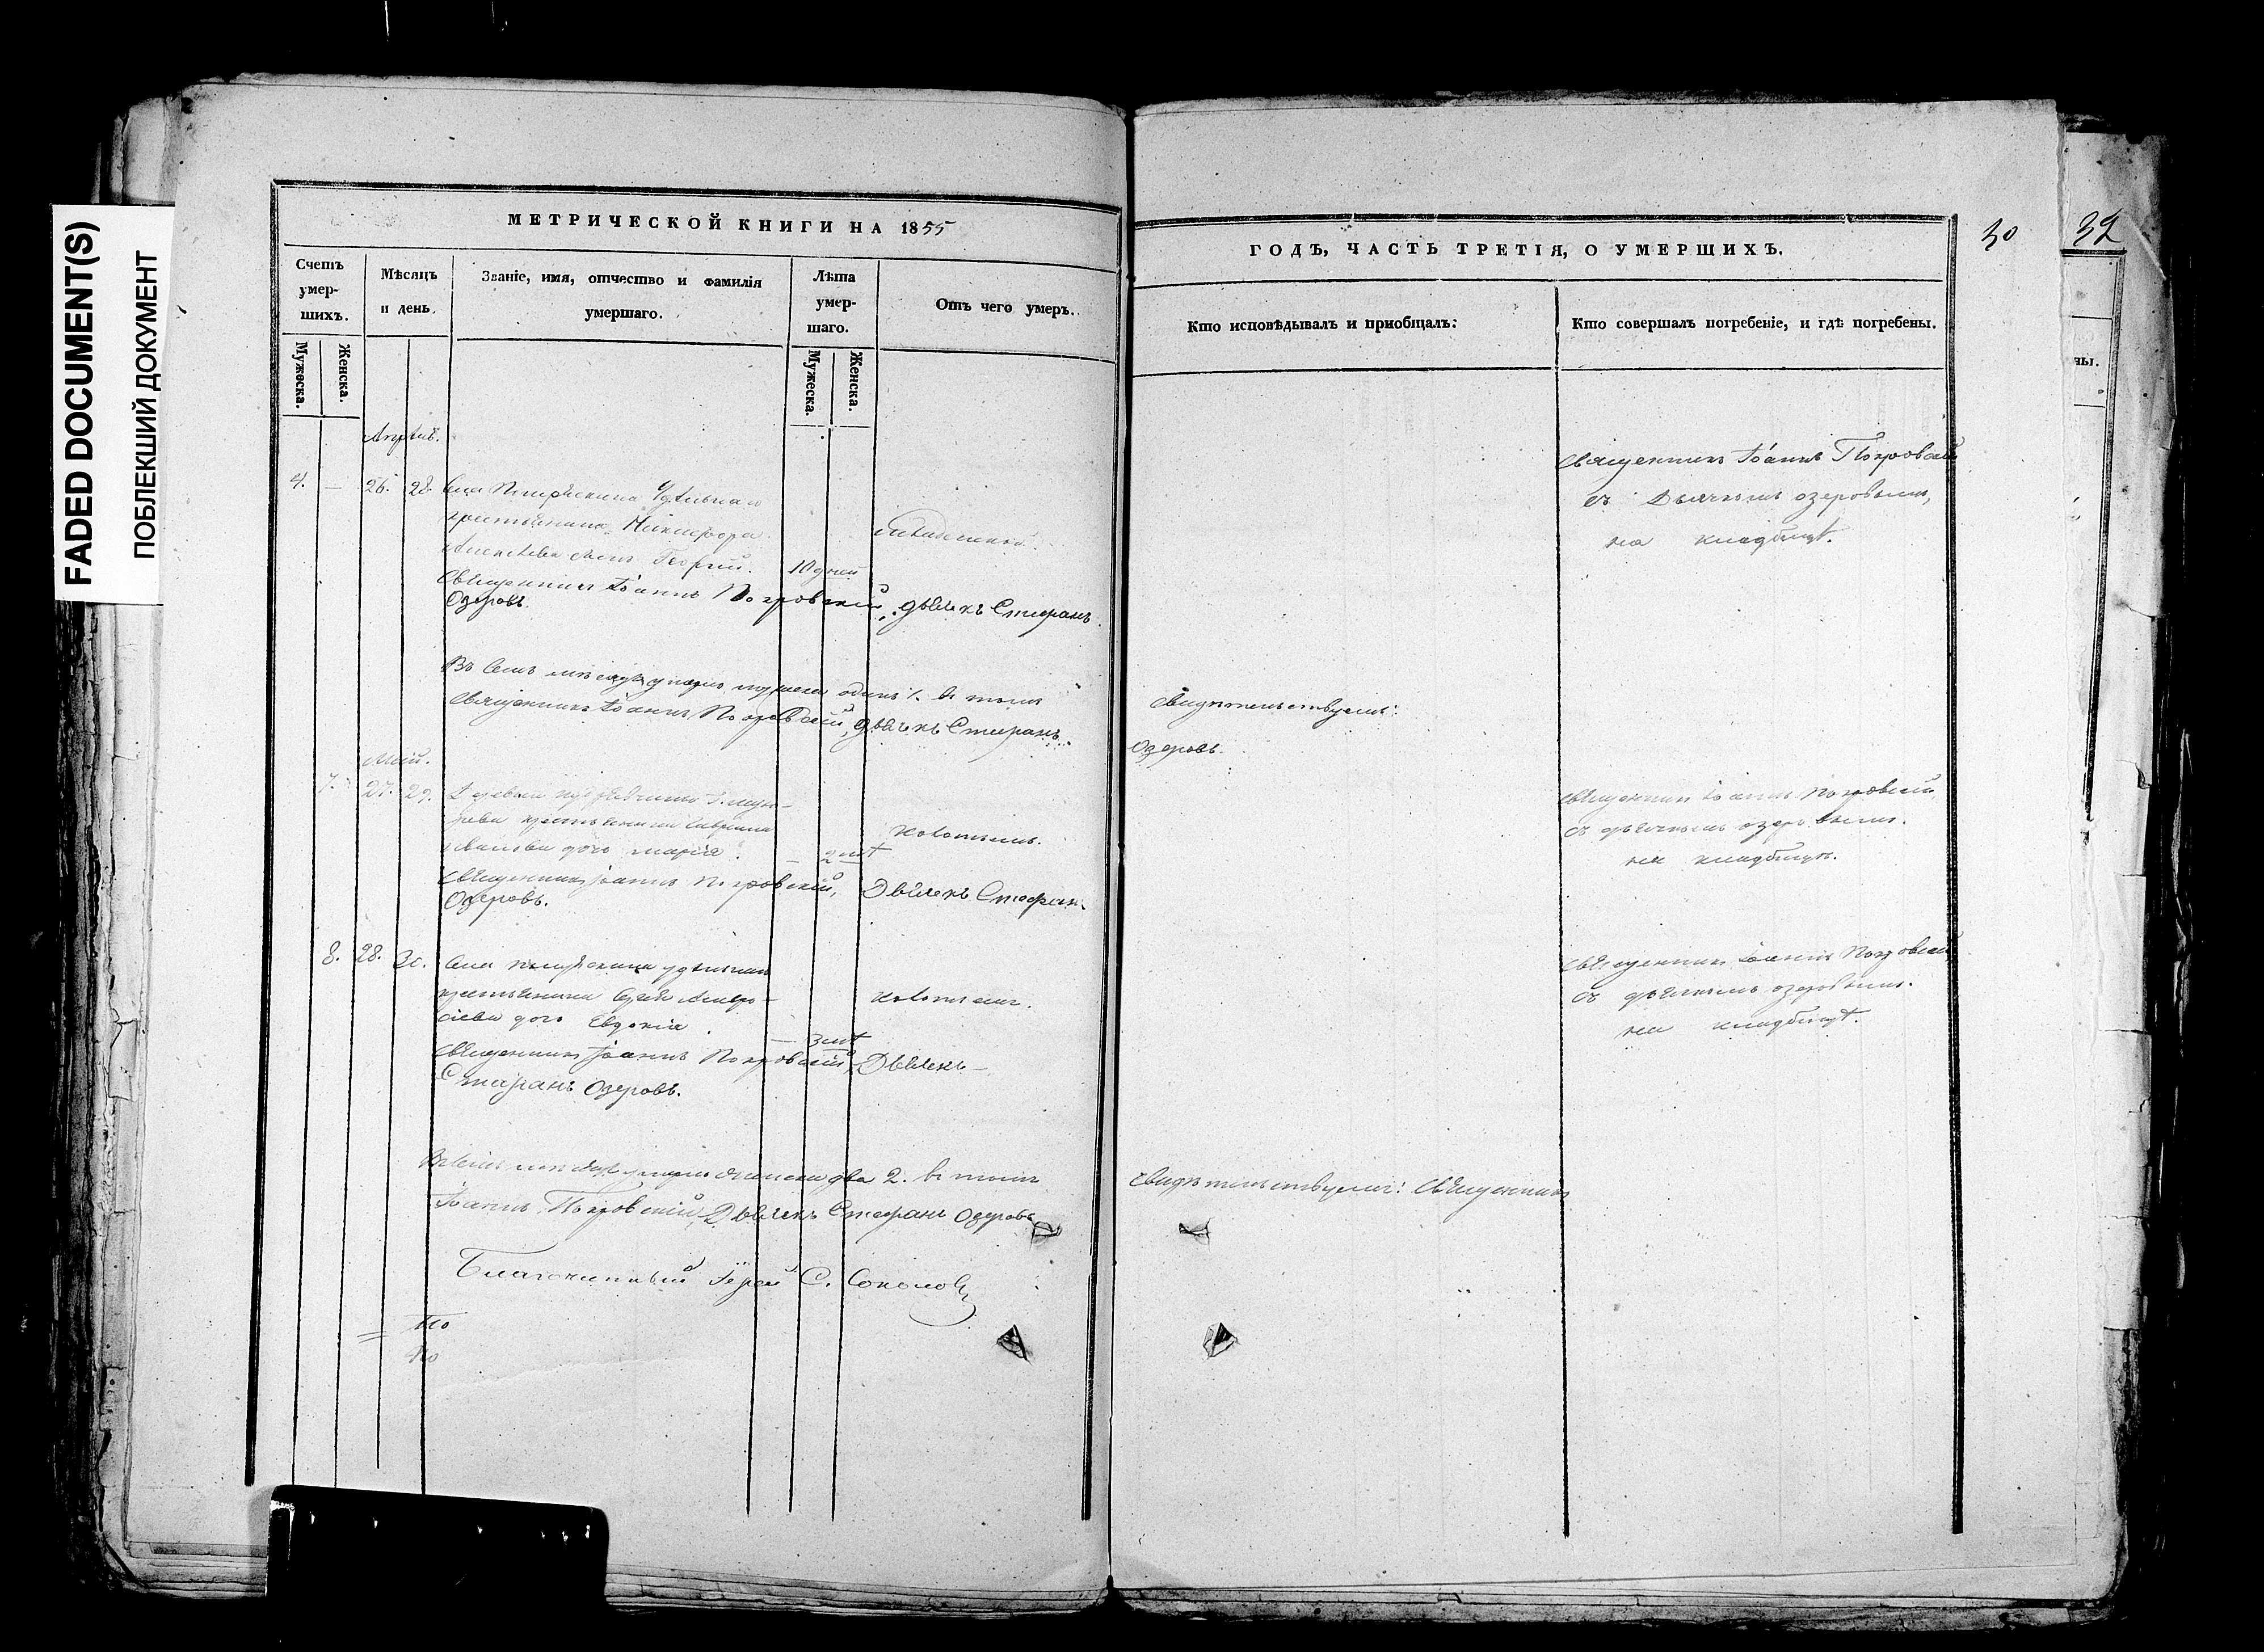 FADED DOCUMENT(S)
ПОБЛЕКШИЙ ДОКУМЕНТ
МЕТРИЧЕСКОЙ КНИГИ НА 1855
Счетъ умер-шихъ.
Мужеска.
Женска.
Мѣсяцъ и день.
Званіе, имя, отчество и фамилія
умершаго.
Лѣта умер-шаго.
Мужеска.
Женска.
Отъ чего умеръ.
Апрѣль.
4. — 26. 28. Села удѣльнаго
крестьянина Никифора
Алексѣева сынъ Георгій. 10 дней
Священникъ Іоаннъ Покровскій, дьячекъ Стефанъ
Озеровъ.
Въ семъ мѣсяцѣ умерло мужеска одинъ 1. въ томъ
Священникъ Іоаннъ Покровскій, дьячекъ Стефанъ
Май.
7. 27. 29.
крестьянина Гавріила
дочь Марія. — 2 лѣт
поносомъ.
Священникъ Іоаннъ Покровскій, Дьячекъ Стефан
Озеровъ.
8. 28. 30. Села удѣльнаго
крестьянина
дочь Евдокія. — 3 лѣт
поносомъ.
Священникъ Іоаннъ Покровскій, Дьячекъ
Стефанъ Озеровъ.
Въ семъ мѣсяцѣ умерло женска два 2. въ томъ
Іоаннъ Покровскій, Дьячекъ Стефанъ Озеровъ
Благочинный Іерей С. Соколовъ
По
По
30
32
ГОДЪ, ЧАСТЬ ТРЕТІЯ, О УМЕРШИХЪ.
Кто исповѣдывалъ и пріобщалъ:
Кто совершалъ погребеніе, и гдѣ погребены.
ны.
Священникъ Іоаннъ Покровскій
съ Дьячкомъ Озеровымъ,
на кладбищѣ.
свидѣтельствуемъ:
Озеровъ.
Священникъ Іоаннъ Покровскій
съ дьячкомъ Озеровымъ.
на кладбищѣ.
Священникъ Іоаннъ Покровскій
съ дьячкомъ Озеровымъ.
на кладбищѣ.
свидѣтельствуемъ: Священникъ